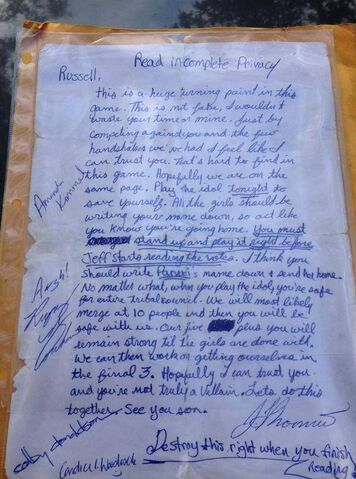 Read in complete Privacy
Russell,
this is a huge turning point in this
game. This is not fake, I wouldn't
waste your time or mine. Just by
competing against you and the few
handshakes we've had I feel like I
can trust you. That's hard to find in
this game. Hopefully we are on the
same page. Play the idol tonight to
save yourself. All the girls should be
writing your name down, so act like
you know you're going home. You must
stand up and play it right before
Jeff starts reading the votes. I think you
should write Parvati's name down & send her home.
No matter what, when you play the idol, you're safe
for entire tribal council. We will most likely
merge at 10 people and then you will be
safe with us. Our five plus you will
remain strong til the girls are done with.
We can then work on getting ourselves in
the final 3. Hopefully I can trust you
and you're not truly a Villain. Lets do this
together. See you soon.
JThomas
Destroy this right when you finish
Reading
Amanda Kimmel
colby donaldson
Candice